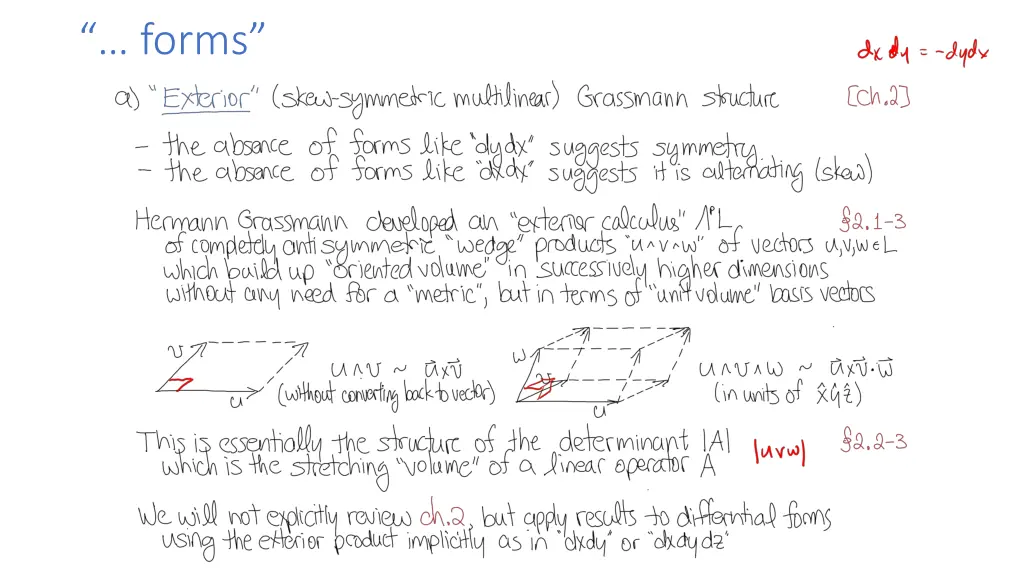 “... forms”
dx dy = -dydx
a) "Exterior" (skew-symmetric multilinear) Grassmann structure [Ch.2]
- the absence of forms like "dydx" suggests symmetry
- the absence of forms like "dxdx" suggests it is alternating (skew)
Hermann Grassmann developed an "exterior calculus" ΛᵖL §2.1-3
of completely antisymmetric "wedge" products "u∧v∧w" of vectors u,v,w∈L
which build up "oriented volume" in successively higher dimensions
without any need for a "metric", but in terms of "unit volume" basis vectors
v
u
u∧v ~ u⃗×v⃗
(without converting back to vector)
w
v
u
u∧v∧w ~ u⃗×v⃗·w⃗
(in units of x̂ŷẑ)
This is essentially the structure of the determinant |A| §2.2-3
which is the stretching "volume" of a linear operator A
|uvw|
We will not explicitly review ch.2, but apply results to differntial forms
using the exterior product implicitly as in "dxdy" or "dxdydz"